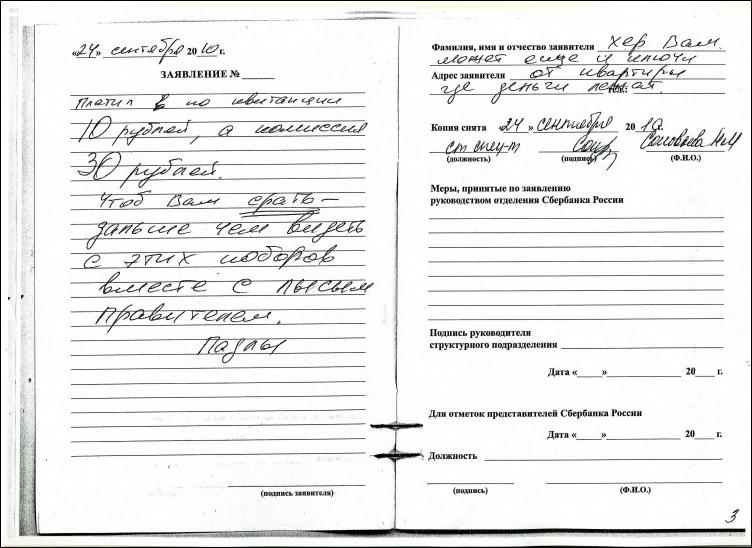 «24» сентября 2010 г.
ЗАЯВЛЕНИЕ №
Платил в по квитанции
10 рублей, а комиссия
30 рублей.
Чтоб Вам срать –
дальше чем видеть
с этих поборов
вместе с лысым
правителем.
Падлы
(подпись заявителя)
Фамилия, имя и отчество заявителя Хер Вам.
может еще и ключи
Адрес заявителя от квартиры
где деньги лежат. тел.:
Копия снята «24» сентября 2010.
ст спец-т Соловьева НМ
(должность) (подпись) (Ф.И.О.)
Меры, принятые по заявлению
руководством отделения Сбербанка России
Подпись руководителя
структурного подразделения
Дата «    »    20    г.
Для отметок представителей Сбербанка России
Дата «    »    20    г.
Должность
(подпись) (Ф.И.О.)
3